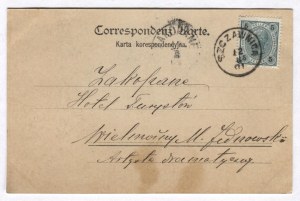 Correspondenz-Karte.
Karta korespondencyjna.
SZCZAWNICA
Zakopane
Hotel Turystów
Wielmożny M.
Artysta dramatyczny